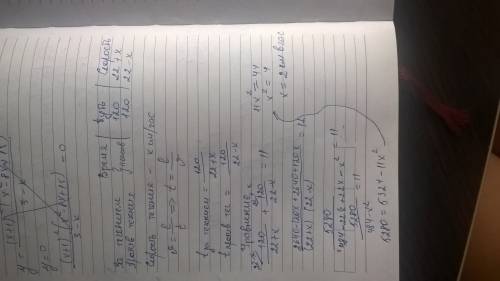 y = 0
3 - x
Время | Путь | Скорость
По течению | | 120 | 22+x
Против течения | | 120 | 22-x
Скорость течения - x км/час
v = l/t => t = l/v
t по течению = 120/22+x
t против теч = 120/22-x
Уравнение
120/22+x + 120/22-x = 11
2640-120x+2640+120x/(22+x)(22-x) = 11
5280/484-22x+22x-x² = 11
5280/484-x² = 11
5280 = 5324 - 11x²
11x² = 44
x² = 4
x = 2 км в час